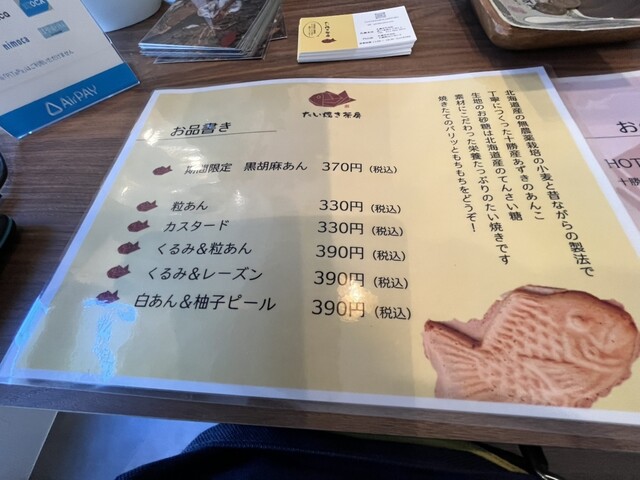 nimoca
Air PAY
たい焼き茶房
お品書き
期間限定 黒胡麻あん 370円(税込)
粒あん 330円(税込)
カスタード 330円(税込)
くるみ&粒あん 390円(税込)
くるみ&レーズン 390円(税込)
白あん&柚子ピール 390円(税込)
北海道産の無農薬栽培の小麦と昔ながらの製法で
丁寧につくった十勝産あずきのあんこ
生地のお砂糖は北海道産のてんさい糖
素材にこだわった栄養たっぷりのたい焼きです
焼きたてのパリッともちもちをどうぞ!
HOT
十勝